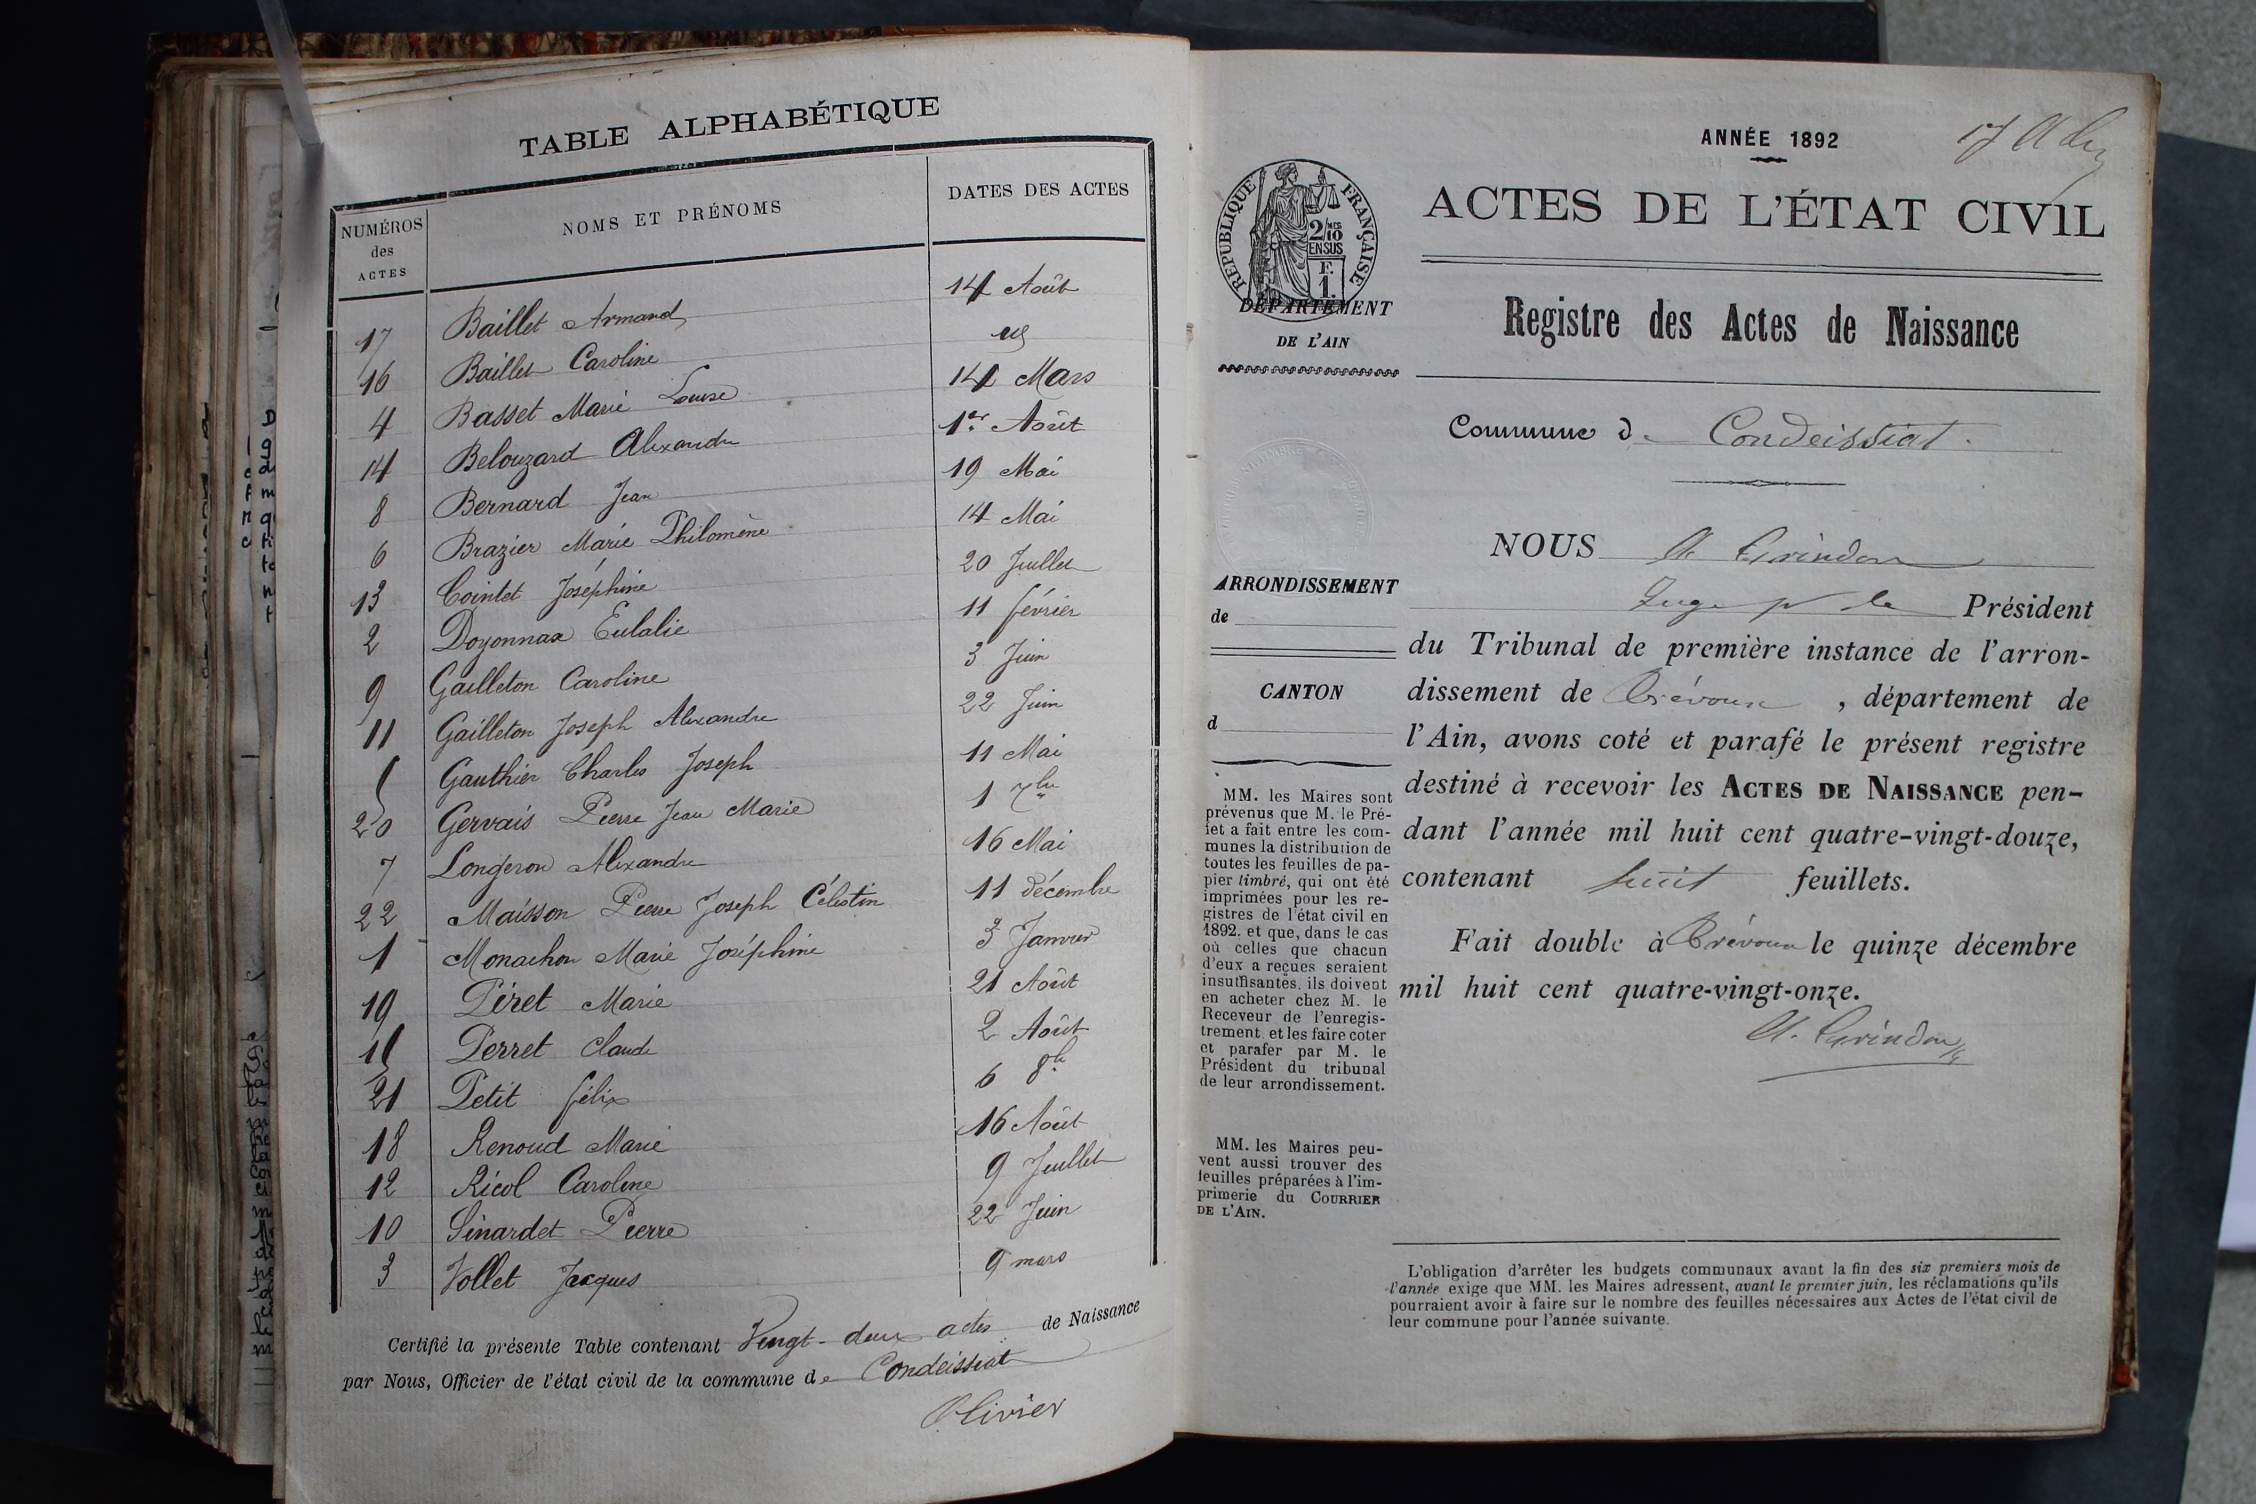 TABLE ALPHABÉTIQUE
NUMÉROS des ACTES NOMS ET PRÉNOMS DATES DES ACTES
17 Baillet Armand 14 Août
16 Baillet Caroline
4 Basset Marie Louise 14 Mars
14 Belouzard Alexandre 1er Août
8 Bernard Jean 19 Mai
6 Brazier Marie Philomène 14 Mai
13 Cointet Joséphine 20 Juillet
2 Doyonnax Eulalie 11 février
9 Gailleton Caroline 3 Juin
11 Gailleton Joseph Alexandre 22 Juin
5 Gauthier Charles Joseph 11 Mai
20 Gervais Pierre Jean Marie 1 7bre
7 Longeron Alexandre 16 Mai
22 Maisson Pierre Joseph Célestin 11 décembre
1 Monachon Marie Joséphine 3 Janvier
19 Péret Marie 21 Août
15 Perret Claude 2 Août
21 Petit félix 6 8bre
18 Renoud Marie 16 Août
12 Ricol Caroline 9 Juillet
10 Sinardet Pierre 22 Juin
3 Vollet Jacques 9 mars
Certifié la présente Table contenant Vingt-deux actes de Naissance
par Nous, Officier de l'état civil de la commune de Condeissiat
Olivier
ANNÉE 1892
RÉPUBLIQUE FRANÇAISE
2/10 MES
EN SUS
F.
1.
ACTES DE L'ÉTAT CIVIL
DÉPARTEMENT
DE L'AIN
Registre des Actes de Naissance
Commune de Condeissiat.
ARRONDISSEMENT
de
CANTON
d
MM. les Maires sont
prévenus que M. le Pré-
fet a fait entre les com-
munes la distribution de
toutes les feuilles de pa-
pier timbré, qui ont été
imprimées pour les re-
gistres de l'état civil en
1892. et que, dans le cas
où celles que chacun
d'eux a reçues seraient
insuffisantes, ils doivent
en acheter chez M. le
Receveur de l'enregis-
trement et les faire coter
et parafer par M. le
Président du tribunal
de leur arrondissement.
MM. les Maires peu-
vent aussi trouver des
feuilles préparées à l'im-
primerie du COURRIER
DE L'AIN.
NOUS A. Grindon
Juge pr le Président
du Tribunal de première instance de l'arron-
dissement de Trévoux, département de
l'Ain, avons coté et parafé le présent registre
destiné à recevoir les ACTES DE NAISSANCE pen-
dant l'année mil huit cent quatre-vingt-douze,
contenant huit feuillets.
Fait double à Trévoux le quinze décembre
mil huit cent quatre-vingt-onze.
A. Grindon
L'obligation d'arrêter les budgets communaux avant la fin des six premiers mois de
l'année exige que MM. les Maires adressent, avant le premier juin, les réclamations qu'ils
pourraient avoir à faire sur le nombre des feuilles nécessaires aux Actes de l'état civil de
leur commune pour l'année suivante.